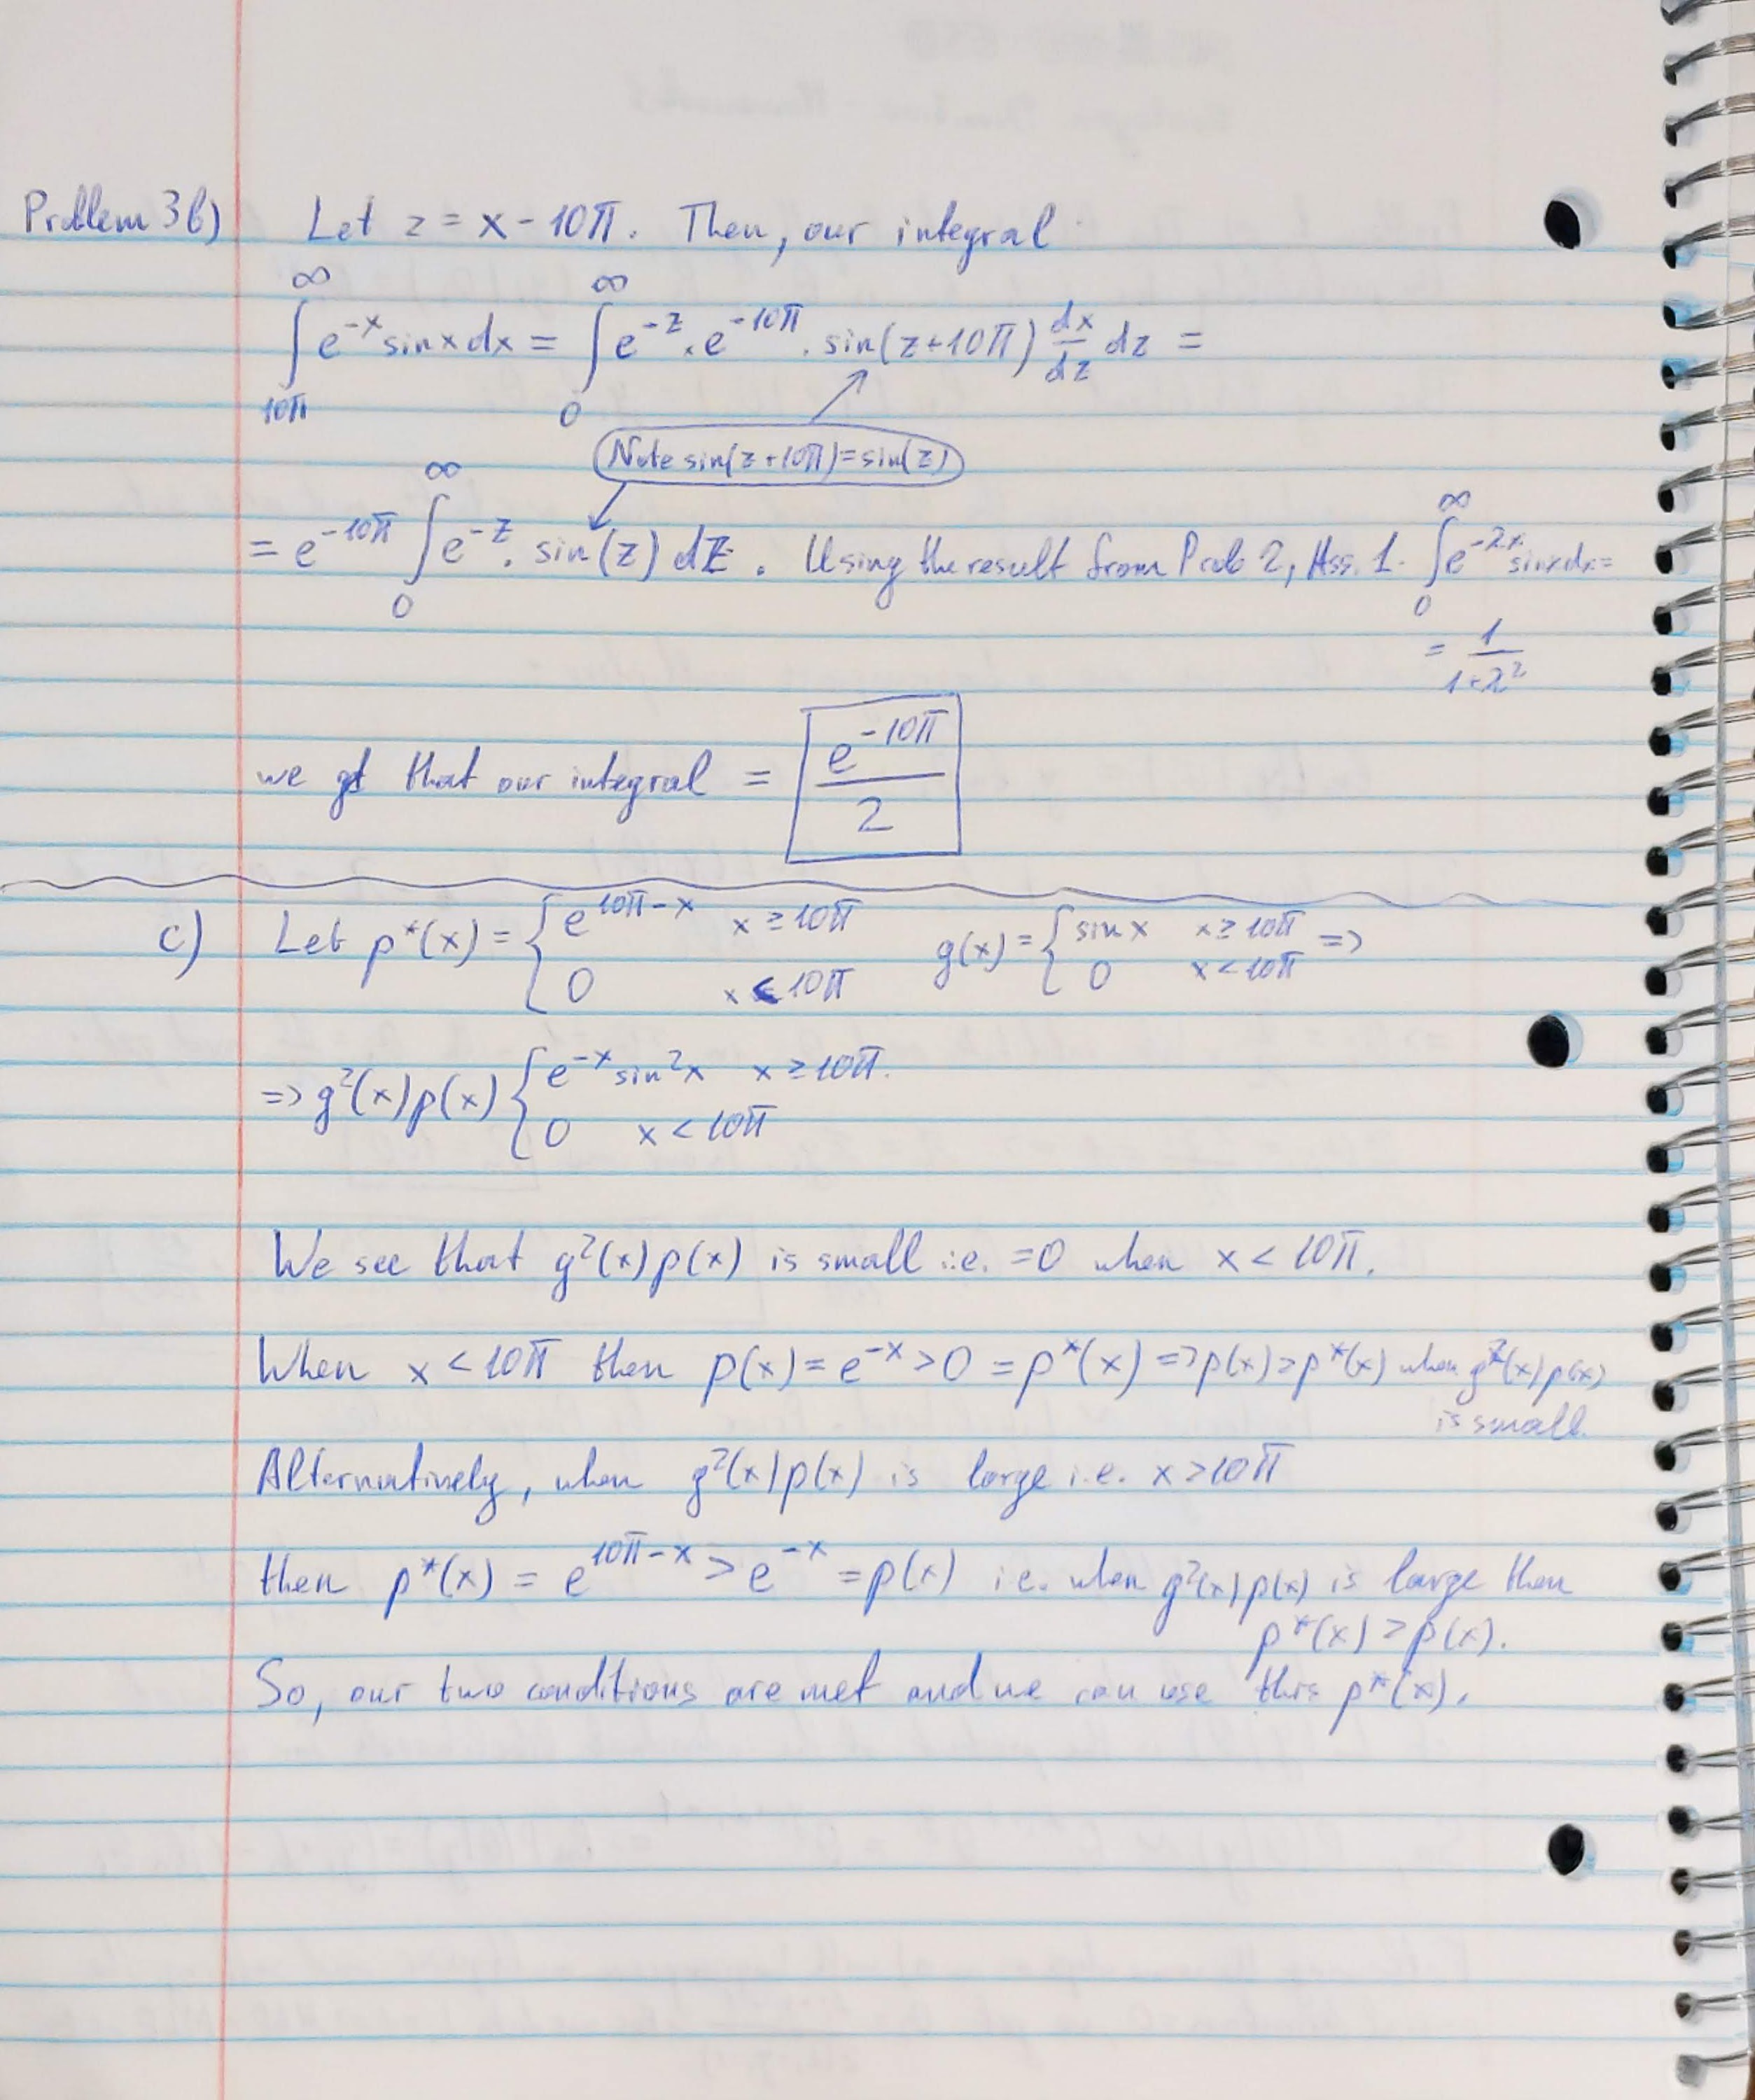 Problem 3b) Let z = x - 10π. Then, our integral
∫_{10π}^{∞} e^{-x} sin x dx = ∫_{0}^{∞} e^{-z} · e^{-10π} · sin(z+10π) dx/dz dz =
Note sin(z+10π)=sin(z)
= e^{-10π} ∫_{0}^{∞} e^{-z} · sin(z) dz . Using the result from Prob 2, Ass. 1. ∫_{0}^{∞} e^{-λx} sin x dx =
= 1/(1+λ²)
we get that our integral = e^{-10π}/2
c) Let p*(x) = { e^{10π-x} x ≥ 10π ; 0 x < 10π g(x) = { sin x x ≥ 10π ; 0 x < 10π =>
=> g²(x)p(x) { e^{-x} sin²x x ≥ 10π. ; 0 x < 10π
We see that g²(x)p(x) is small i.e. =0 when x < 10π.
When x < 10π then p(x) = e^{-x} > 0 = p*(x) => p(x) > p*(x) when g²(x)p(x)
is small.
Alternatively, when g²(x)p(x) is large i.e. x > 10π
then p*(x) = e^{10π-x} > e^{-x} = p(x) i.e. when g²(x)p(x) is large then
p*(x) > p(x).
So, our two conditions are met and we can use this p*(x).